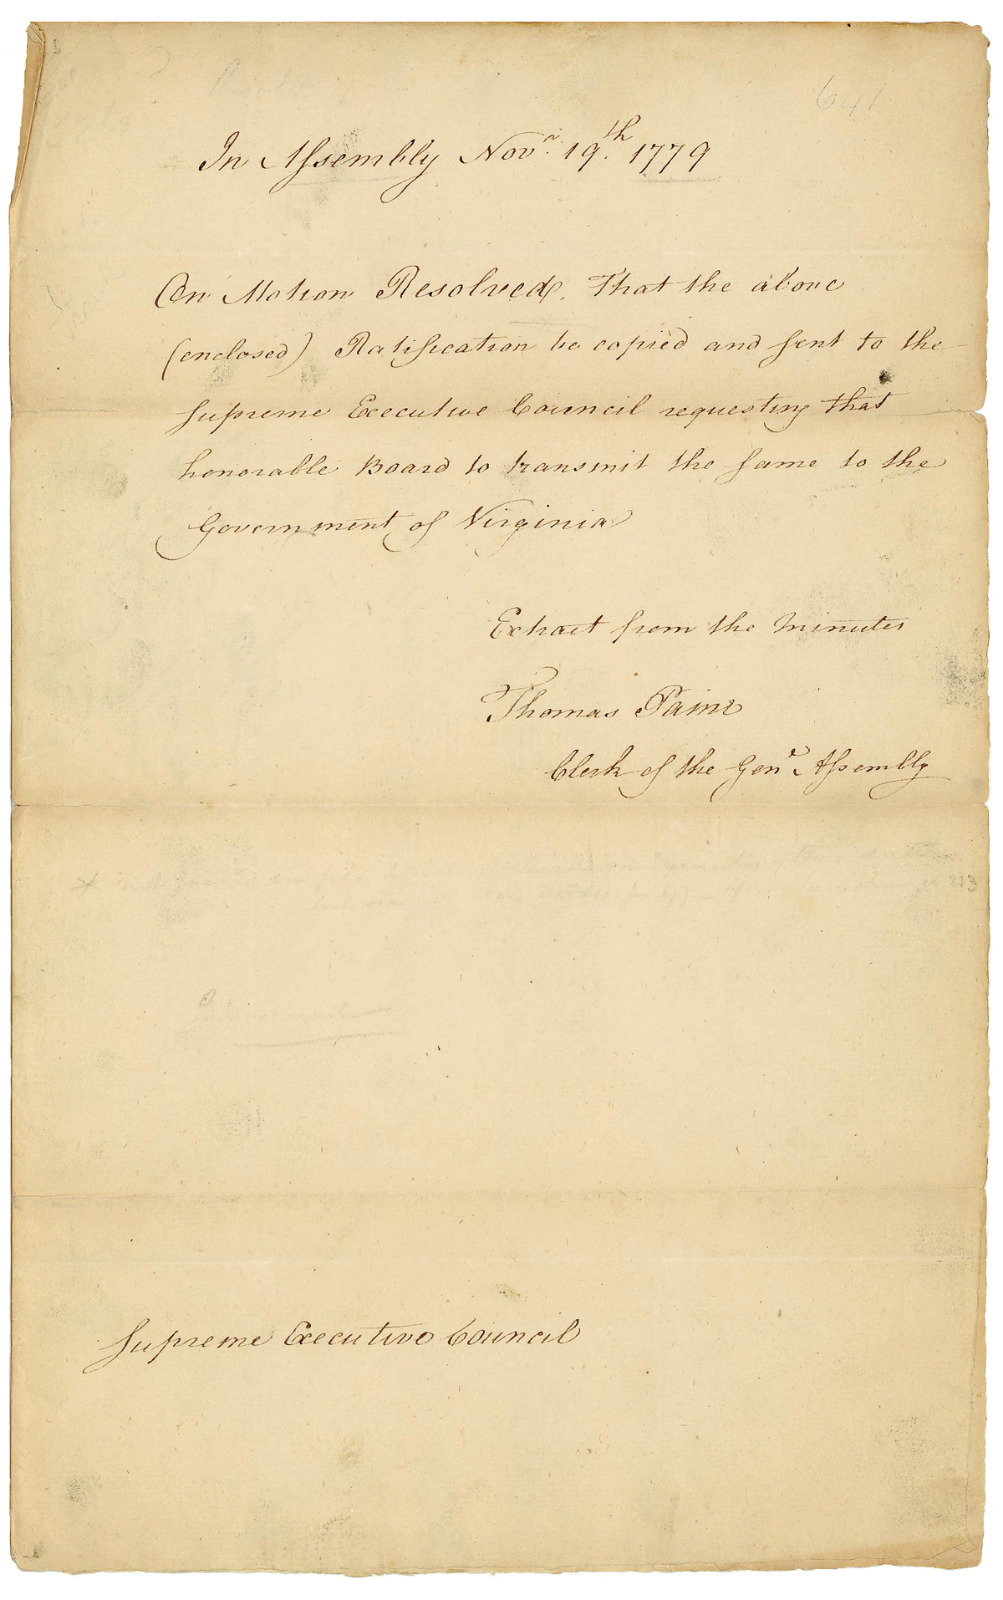 641
In Assembly Novr. 19th. 1779
On Motion Resolved. That the above
(enclosed) Ratification be copied and sent to the
Supreme Executive Council requesting that
honorable Board to transmit the same to the
Government of Virginia
Extract from the Minutes
Thomas Paine
Clerk of the Genl. Assembly
Supreme Executive Council